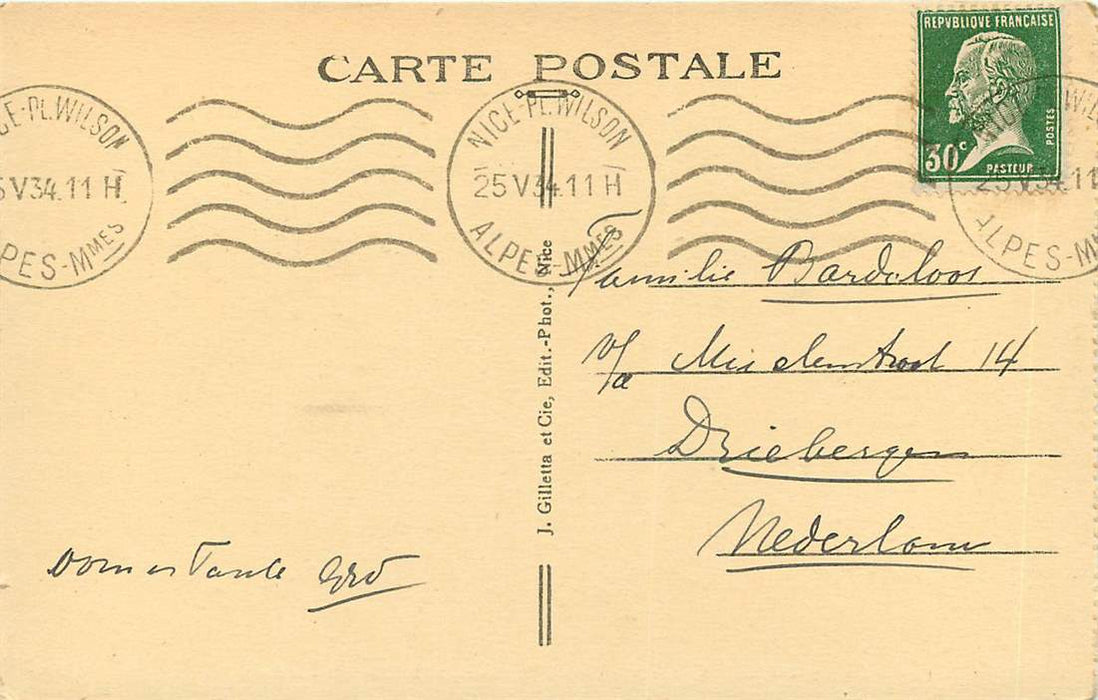 CARTE POSTALE
REPVBLIQUE FRANÇAISE
30c
POSTES
PASTEUR
CE-PL.WILSON
5 V34.11 H
PES-MMES
NICE-PL.WILSON
25 V34.11 H
ALPES-MMES
NICE-PL.WIL
25 V34.11
ALPES-M
J. Gilletta et Cie, Edit.-Phot., Nice
Familie Bardeloos
p/a 14
Driebergen
Nederland
Oom en Tante